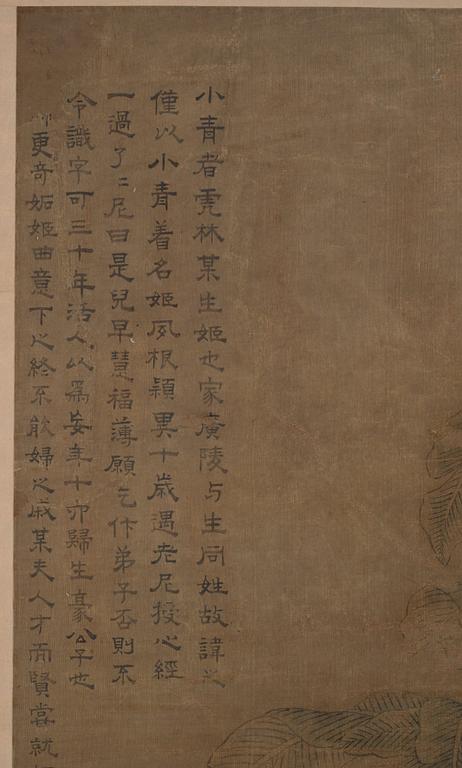 小青者虎林某生姬也家廣陵与生同姓故諱之
僅以小青着名姬夙根穎異十歲遇老尼授心經
一過了了尼曰是兒早慧福薄願乞作弟子否則不
令識字可三十年活人以爲妄年十六歸生豪公子也
更奇妬姬曲意下之終不能婦之戚某夫人才而賢嘗就